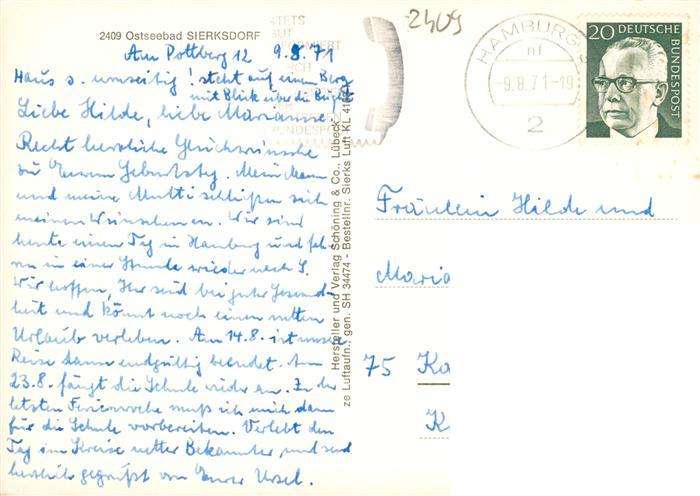 2409 Ostseebad SIERKSDORF
Am Pottberg 12 9.8.71
Haus s. umseitig! steht auf einem Berg
mit Blick über die Bucht
Liebe Hilde, liebe Marianne,
Recht herzliche Glückwünsche
zu Eurem Geburtstag. Mein Mann
und meine Mutti schließen sich
meinen Wünschen an. Wir sind
heute einen Tag in Hamburg und fah-
ren in einer Stunde wieder nach S.
Wir hoffen, Ihr seid bei guter Gesund-
heit und könnt noch einen netten
Urlaub verleben. Am 14.8. ist unsere
Reise dann endgültig beendet. Am
23.8. fängt die Schule wieder an. In der
letzten Ferienwoche muß ich mich dann
für die Schule vorbereiten. Verlebt den
Tag im Kreise netter Bekannter und seid
herzlich gegrüßt von Eurer Ursel.
Hersteller und Verlag Schöning & Co., Lübeck
ze Luftaufn., gen. SH 34474 - Bestellnr. Sierks Luft KL 41
2409
HAMBURG
-9.8.71-19
2
20 DEUTSCHE
BUNDESPOST
Fräulein Hilde und
Maria
75 Ka
K